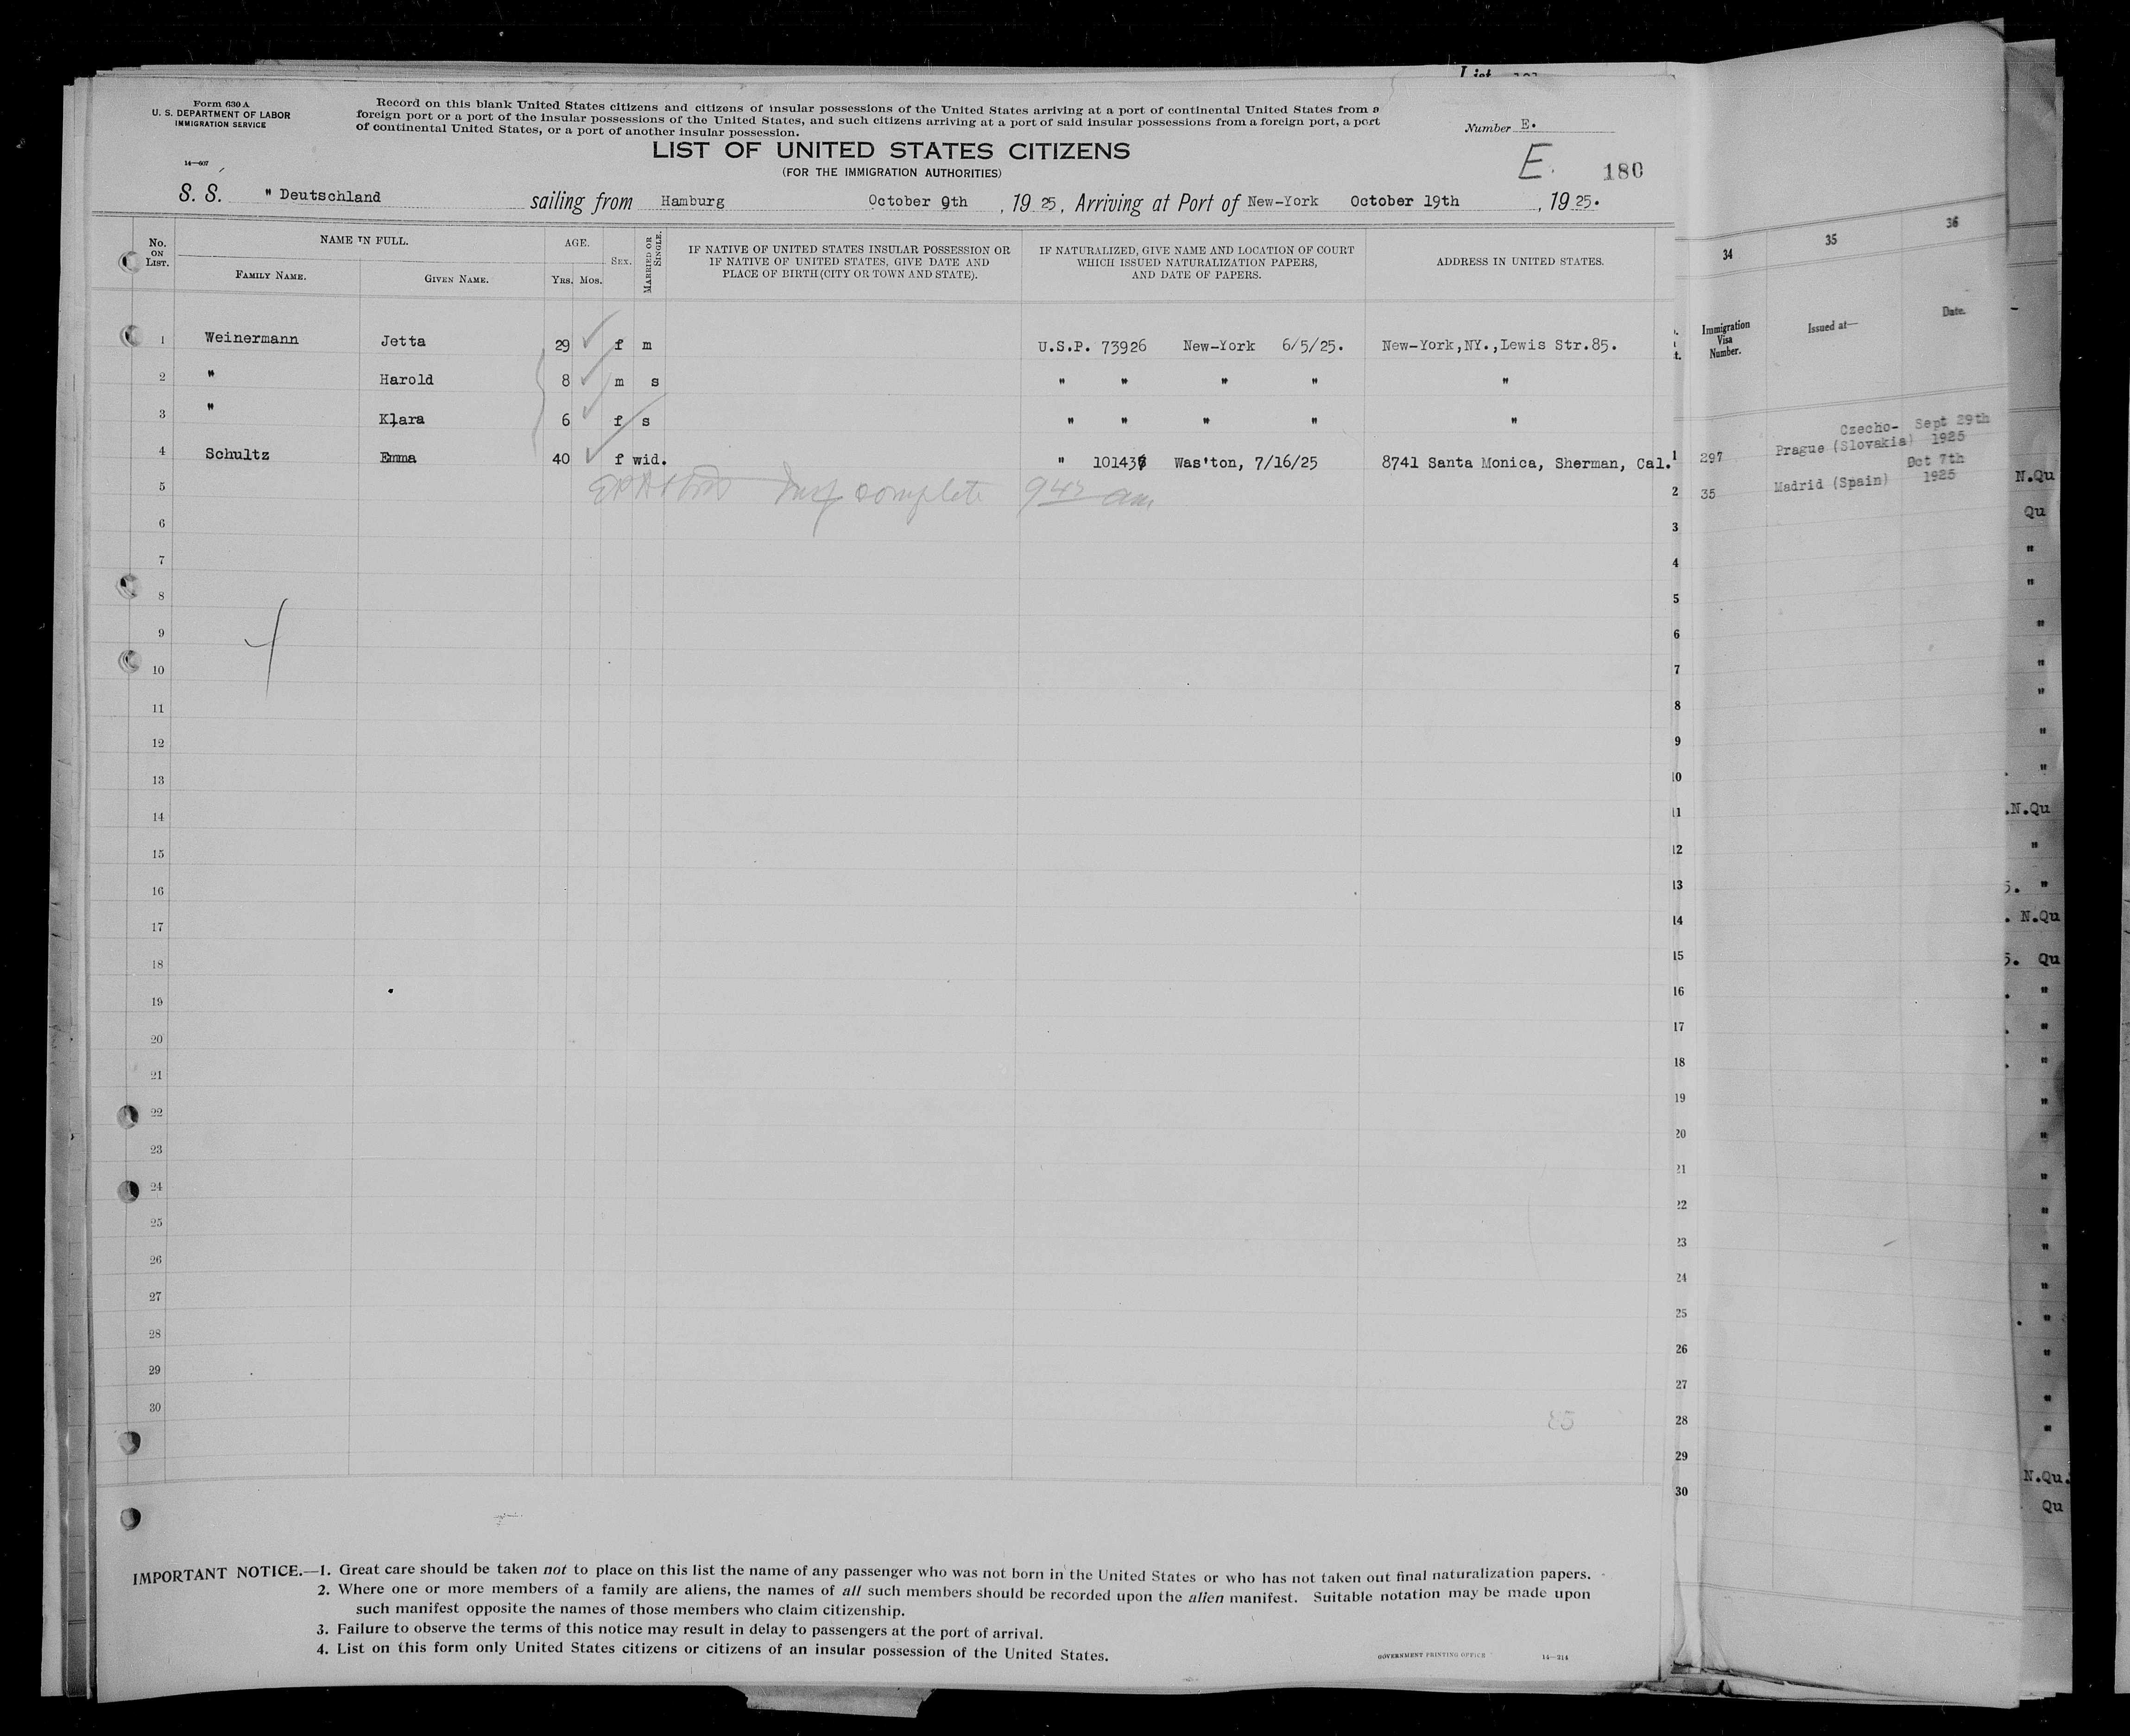 Form 630 A
U. S. DEPARTMENT OF LABOR
IMMIGRATION SERVICE
14—607
Record on this blank United States citizens and citizens of insular possessions of the United States arriving at a port of continental United States from a
foreign port or a port of the insular possessions of the United States, and such citizens arriving at a port of said insular possessions from a foreign port, a port
of continental United States, or a port of another insular possession.
Number E.
LIST OF UNITED STATES CITIZENS
(FOR THE IMMIGRATION AUTHORITIES)
E. 180
S. S. " Deutschland sailing from Hamburg October 9th , 19 25, Arriving at Port of New-York October 19th , 19 25.
No. ON LIST.
NAME IN FULL.
FAMILY NAME. GIVEN NAME.
AGE.
YRS. MOS.
SEX.
MARRIED OR SINGLE.
IF NATIVE OF UNITED STATES INSULAR POSSESSION OR
IF NATIVE OF UNITED STATES, GIVE DATE AND
PLACE OF BIRTH (CITY OR TOWN AND STATE).
IF NATURALIZED, GIVE NAME AND LOCATION OF COURT
WHICH ISSUED NATURALIZATION PAPERS,
AND DATE OF PAPERS.
ADDRESS IN UNITED STATES.
1 Weinermann Jetta 29 f m U.S.P. 73926 New-York 6/5/25. New-York,NY.,Lewis Str.85.
2 " Harold 8 m s " " " " "
3 " Klara 6 f s " " " " "
4 Schultz Emma 40 f wid. " 10143 Was'ton, 7/16/25 8741 Santa Monica, Sherman, Cal.
5 complete 9 45 am
6
7
8
9
10
11
12
13
14
15
16
17
18
19
20
21
22
23
24
25
26
27
28
29
30
IMPORTANT NOTICE.—1. Great care should be taken not to place on this list the name of any passenger who was not born in the United States or who has not taken out final naturalization papers.
2. Where one or more members of a family are aliens, the names of all such members should be recorded upon the alien manifest. Suitable notation may be made upon
such manifest opposite the names of those members who claim citizenship.
3. Failure to observe the terms of this notice may result in delay to passengers at the port of arrival.
4. List on this form only United States citizens or citizens of an insular possession of the United States.
GOVERNMENT PRINTING OFFICE 14—314
34 35 36
Immigration
Visa
Number.
Issued at—
Date.
1 297 Prague (Czecho-Slovakia) Sept 29th 1925
2 35 Madrid (Spain) Oct 7th 1925
3
4
5
6
7
8
9
10
11
12
13
14
15
16
17
18
19
20
21
22
23
24
25
26
27
28
29
30
N.Qu
Qu
"
"
"
"
"
"
"
.N.Qu
"
5. "
. N.Qu
5. Qu
"
"
"
"
"
"
"
"
"
"
"
"
"
N.Qu.
Qu